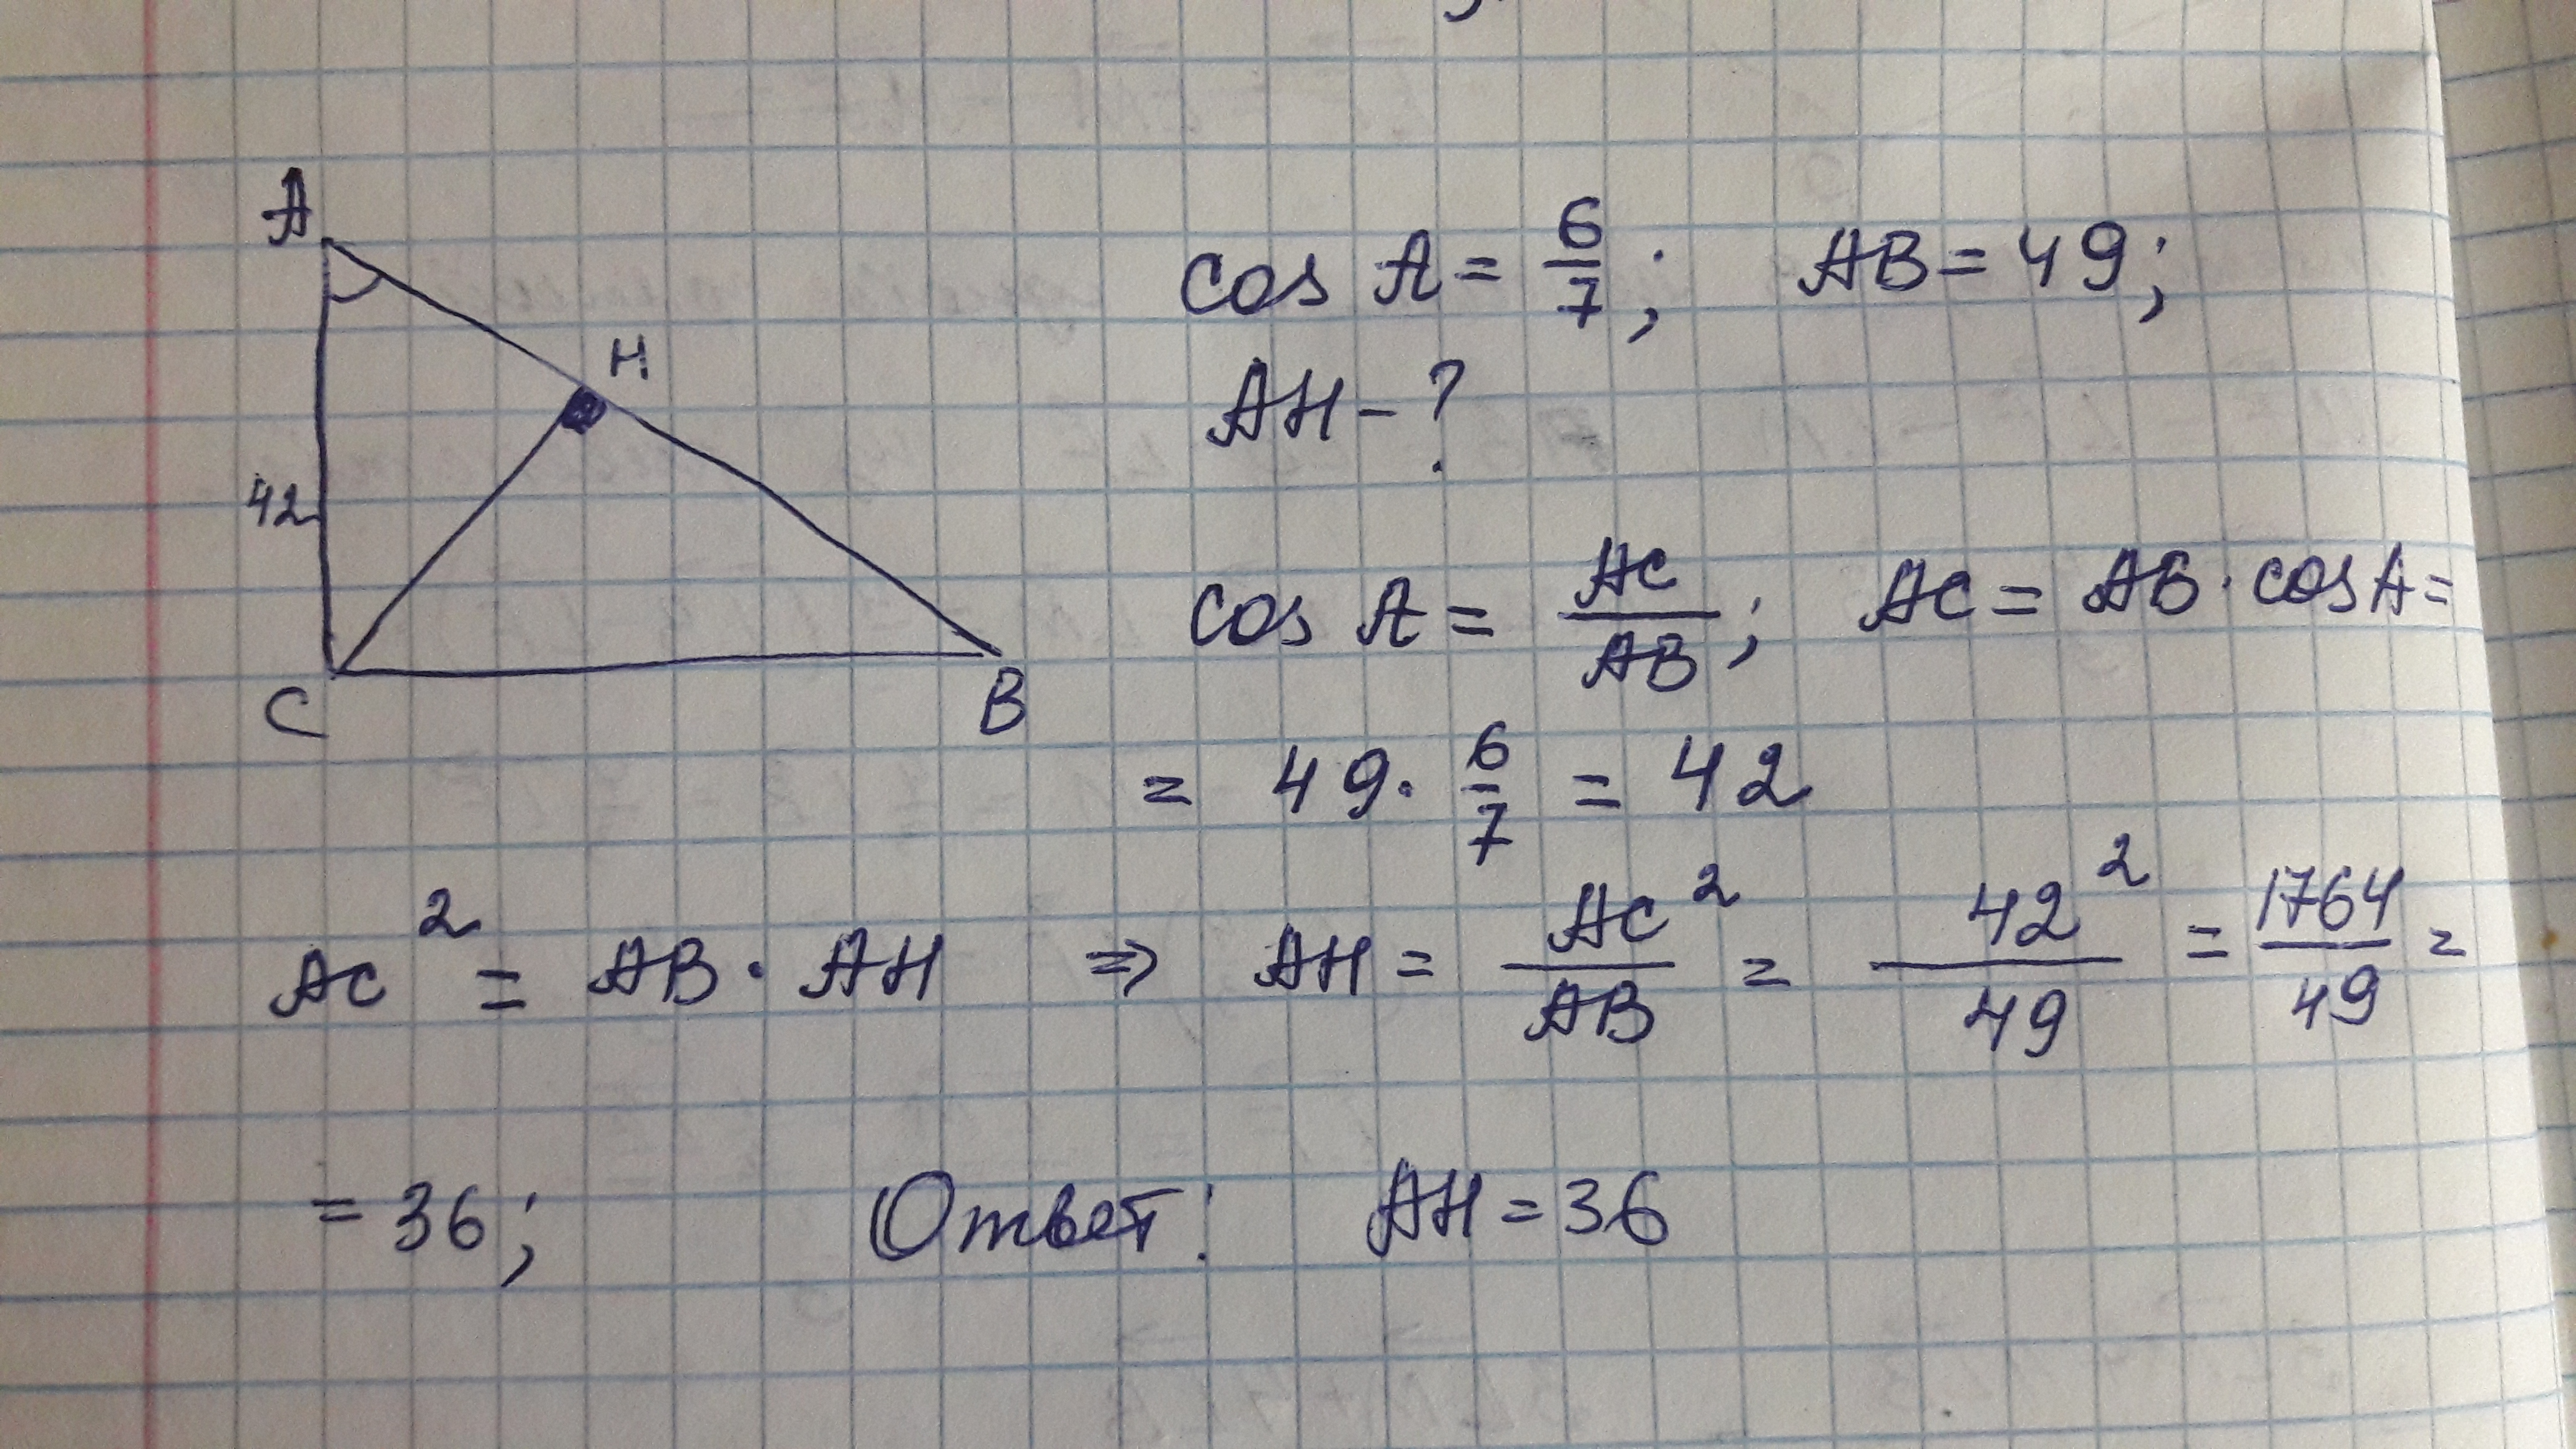 A
H
42
C
B
cos A = 6/7; AB = 49;
AH - ?
cos A = AC/AB; AC = AB · cos A =
= 49 · 6/7 = 42
AC² = AB · AH ⇒ AH = AC²/AB = 42²/49 = 1764/49 =
= 36; Ответ: AH = 36